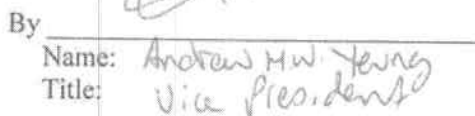 By
Name: Andrew M.W. Yeung
Title: Vice President